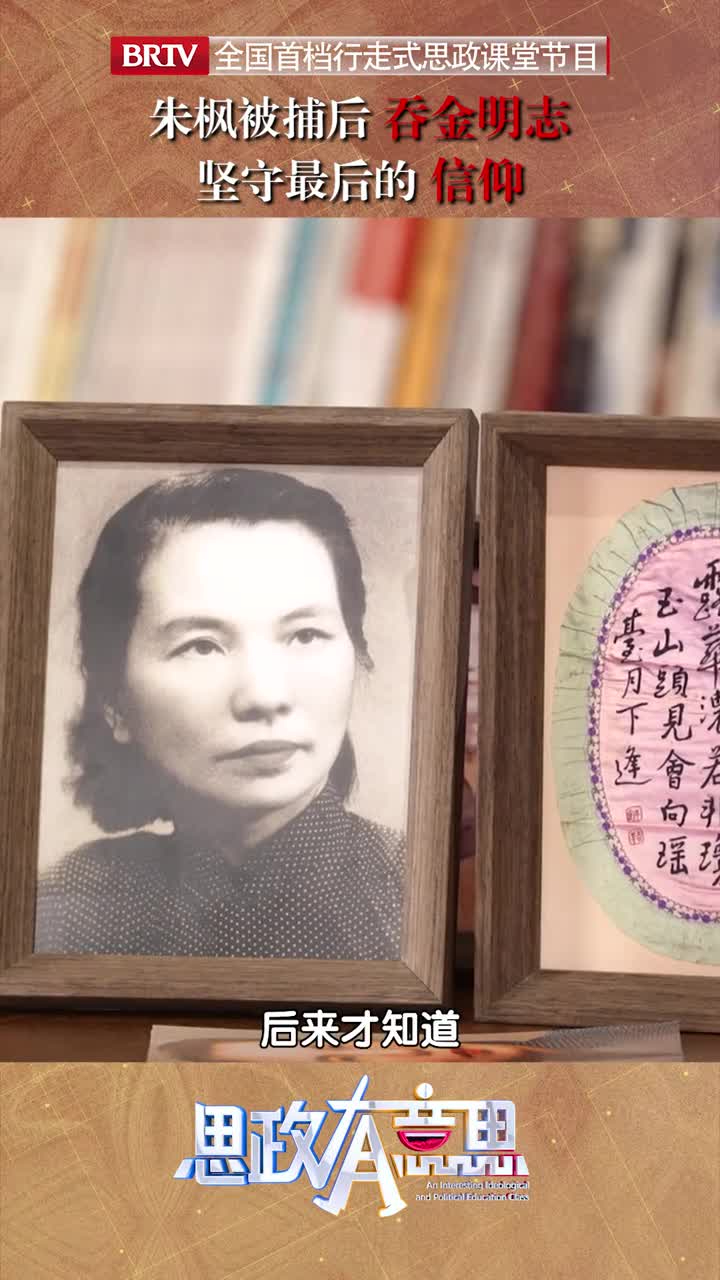 BRTV 全国首档行走式思政课堂节目
朱枫被捕后 吞金明志
坚守最后的 信仰
露華濃若非羣
玉山頭見會向瑶
臺月下逢
后来才知道
思政有意思
An Interesting Ideological
and Political Education Class